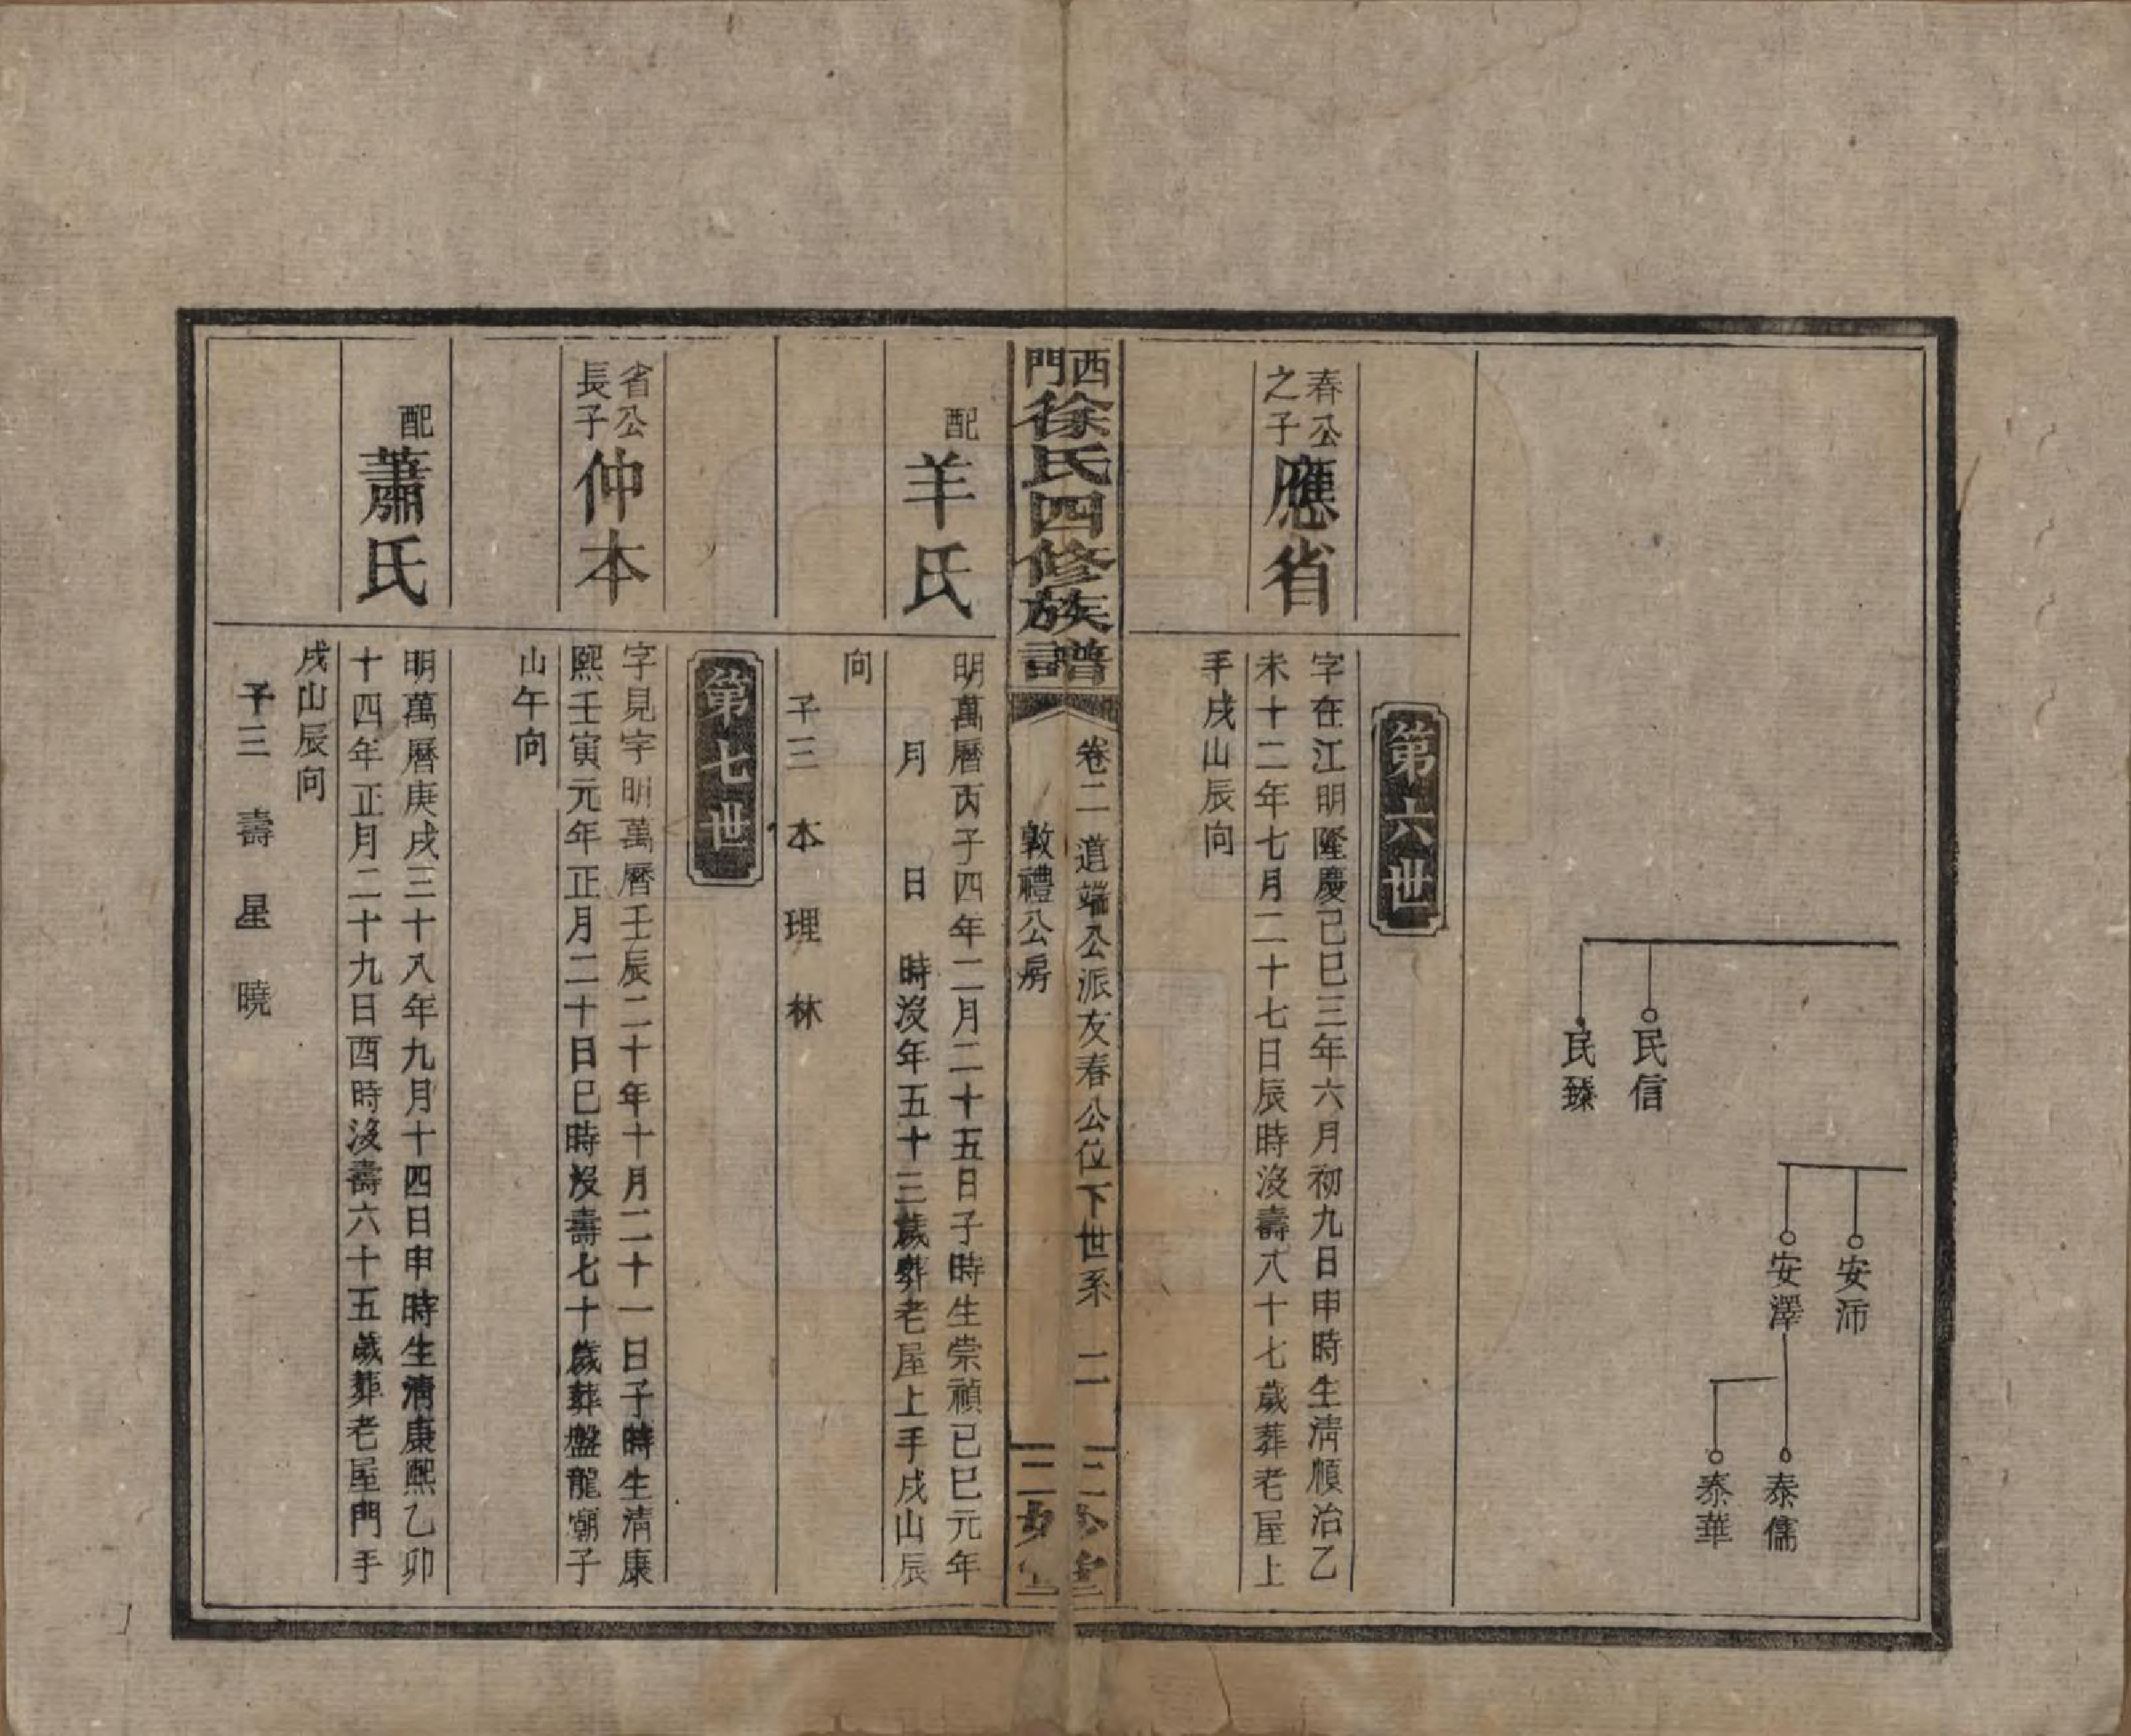 安沛
安澤
泰儒
泰華
民信
民臻
第六世
春公之子
應省
字在江明隆慶己巳三年六月初九日申時生清順治乙
未十二年七月二十七日辰時沒壽八十七歲葬老屋上
手戌山辰向
西門徐氏四修族譜
卷二 道端公派友春公位下世系 二
敦禮公房
配羊氏
明萬曆丙子四年二月二十五日子時生崇禎己巳元年
月 日 時沒年五十三歲葬老屋上手戌山辰
向
子三 本 理 林
第七世
省公長子
仲本
字見宇明萬曆壬辰二十年十月二十一日子時生清康
熙壬寅元年正月二十日巳時沒壽七十歲葬盤龍廟子
山午向
配蕭氏
明萬曆庚戌三十八年九月十四日申時生清康熙乙卯
十四年正月二十九日酉時沒壽六十五歲葬老屋門手
戌山辰向
子三 壽 星 曉